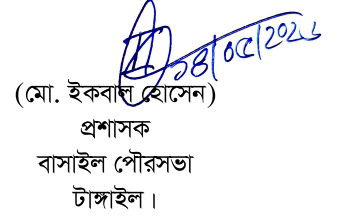 ১৪/০৫/২০২৬
(মো. ইকবাল হোসেন)
প্রশাসক
বাসাইল পৌরসভা
টাঙ্গাইল।